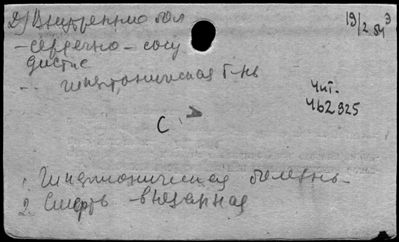 2) Внутренние бол
19/2 54 э
– сердечно – сосу
дистые
.. Гипертоническая б-нь
Чит.
462325
С А
1. Гипертоническая болезнь
2. Смерть внезапная